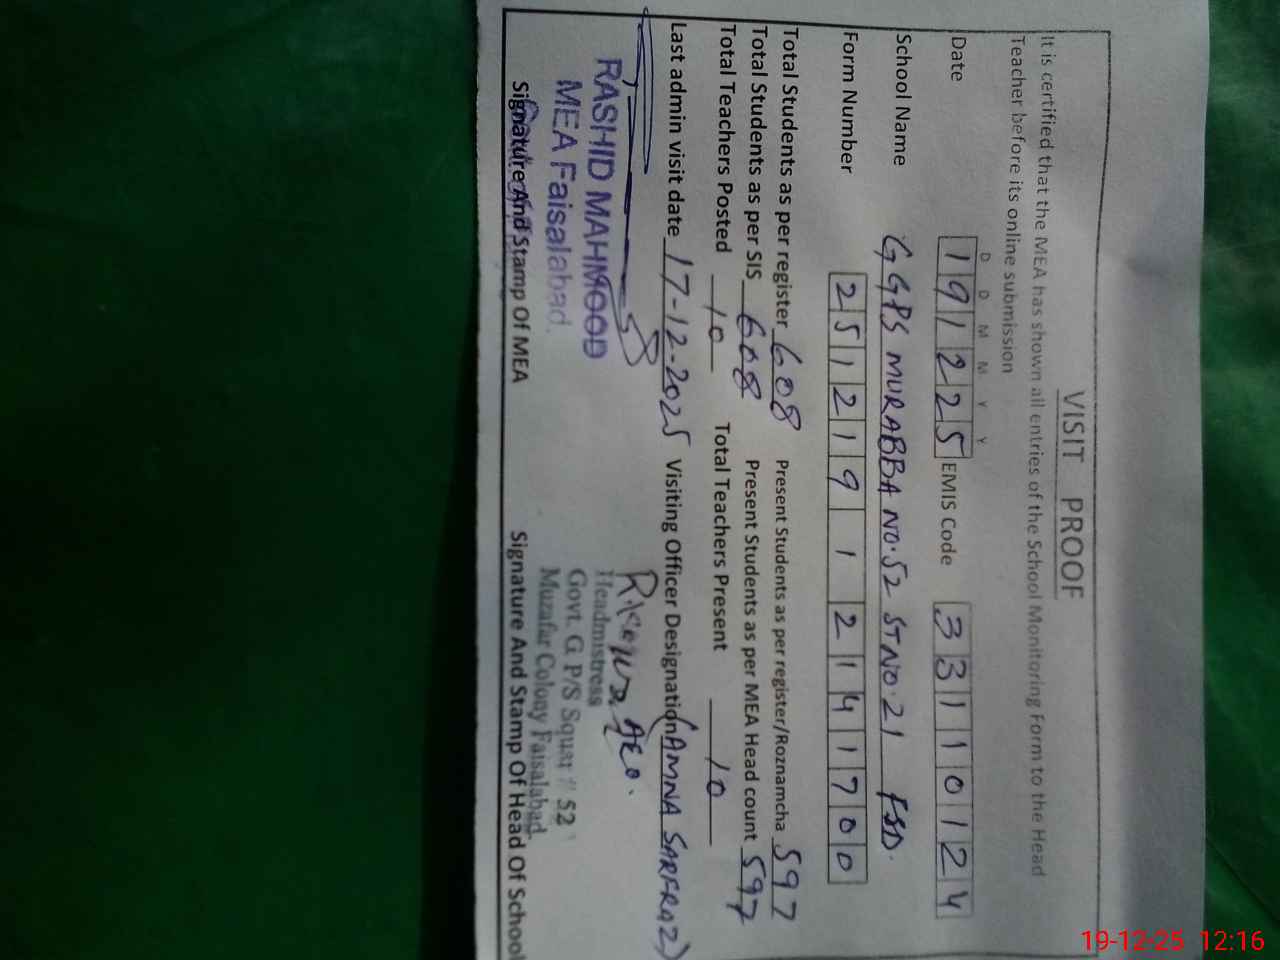 VISIT PROOF
It is certified that the MEA has shown all entries of the School Monitoring Form to the Head
Teacher before its online submission
D D M M Y Y
Date 191225 EMIS Code 33110124
School Name GGPS MURABBA NO.52 ST NO.21 FSD.
Form Number 25121912141700
Total Students as per register 608 Present Students as per register/Roznamcha 597
Total Students as per SIS 608 Present Students as per MEA Head count 597
Total Teachers Posted 10 Total Teachers Present 10
Last admin visit date 17-12-2025 Visiting Officer Designation (AMNA SARFRAZ)
AEO.
RASHID MAHMOOD
MEA Faisalabad.
Headmistress
Govt. G P/S Squar # 52
Muzafar Colony Faisalabad
Signature And Stamp Of MEA Signature And Stamp Of Head Of School
19-12-25 12:16